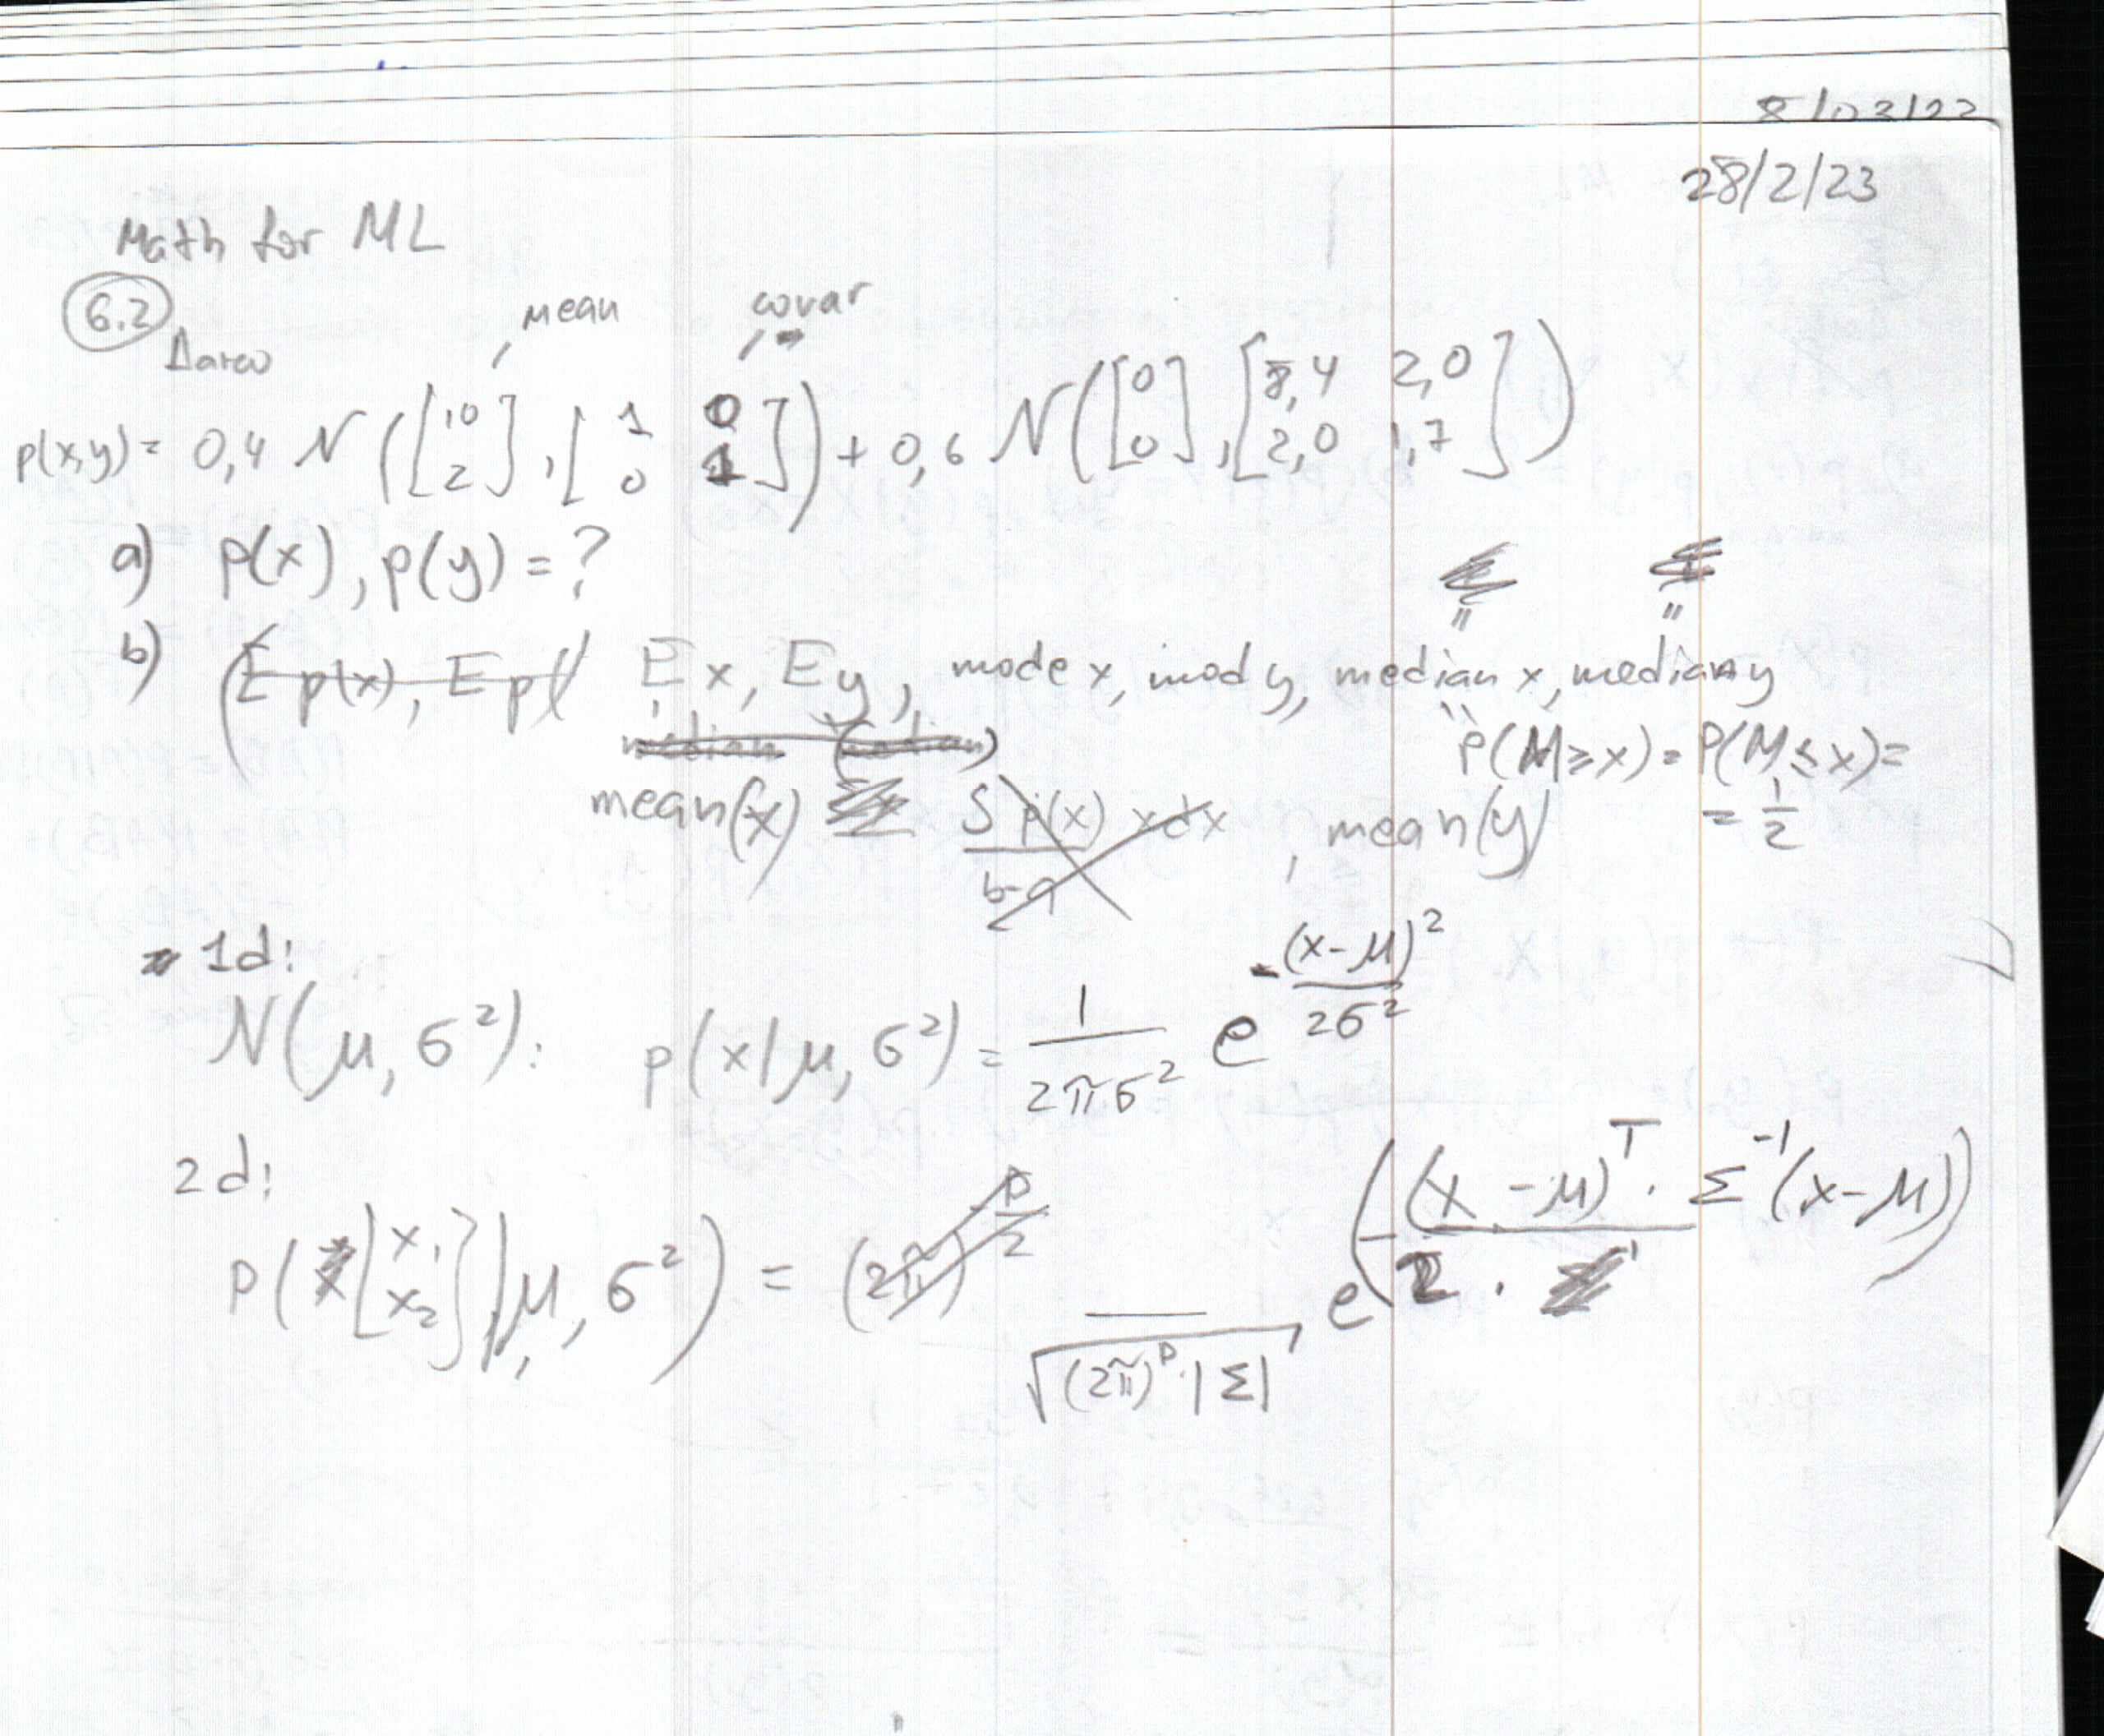 8/03/22
28/2/23
Math for ML
6.2
mean covar
Дано
p(x,y) = 0,4 N([10 2], [1 0 0 1]) + 0,6 N([0 0], [8,4 2,0 2,0 1,7])
a) p(x), p(y) = ?
b) (E p(x), E p( E x, E y, mode x, mod y, median x, median y
median (median)
P(M ≥ x) = P(M ≤ x) = = 1/2
mean(x) ∫ p(x) x dx / b-a , mean(y)
1d:
N(μ, σ²): p(x|μ, σ²) = 1/(2πσ²) e^(-(x-μ)²/(2σ²))
2d:
p([x₁ x₂] | μ, σ²) = (2π)^(-p/2) —/√((2π)^p · |Σ|) e^(-(x-μ)^T · Σ^-1 (x-μ) / 2 · )